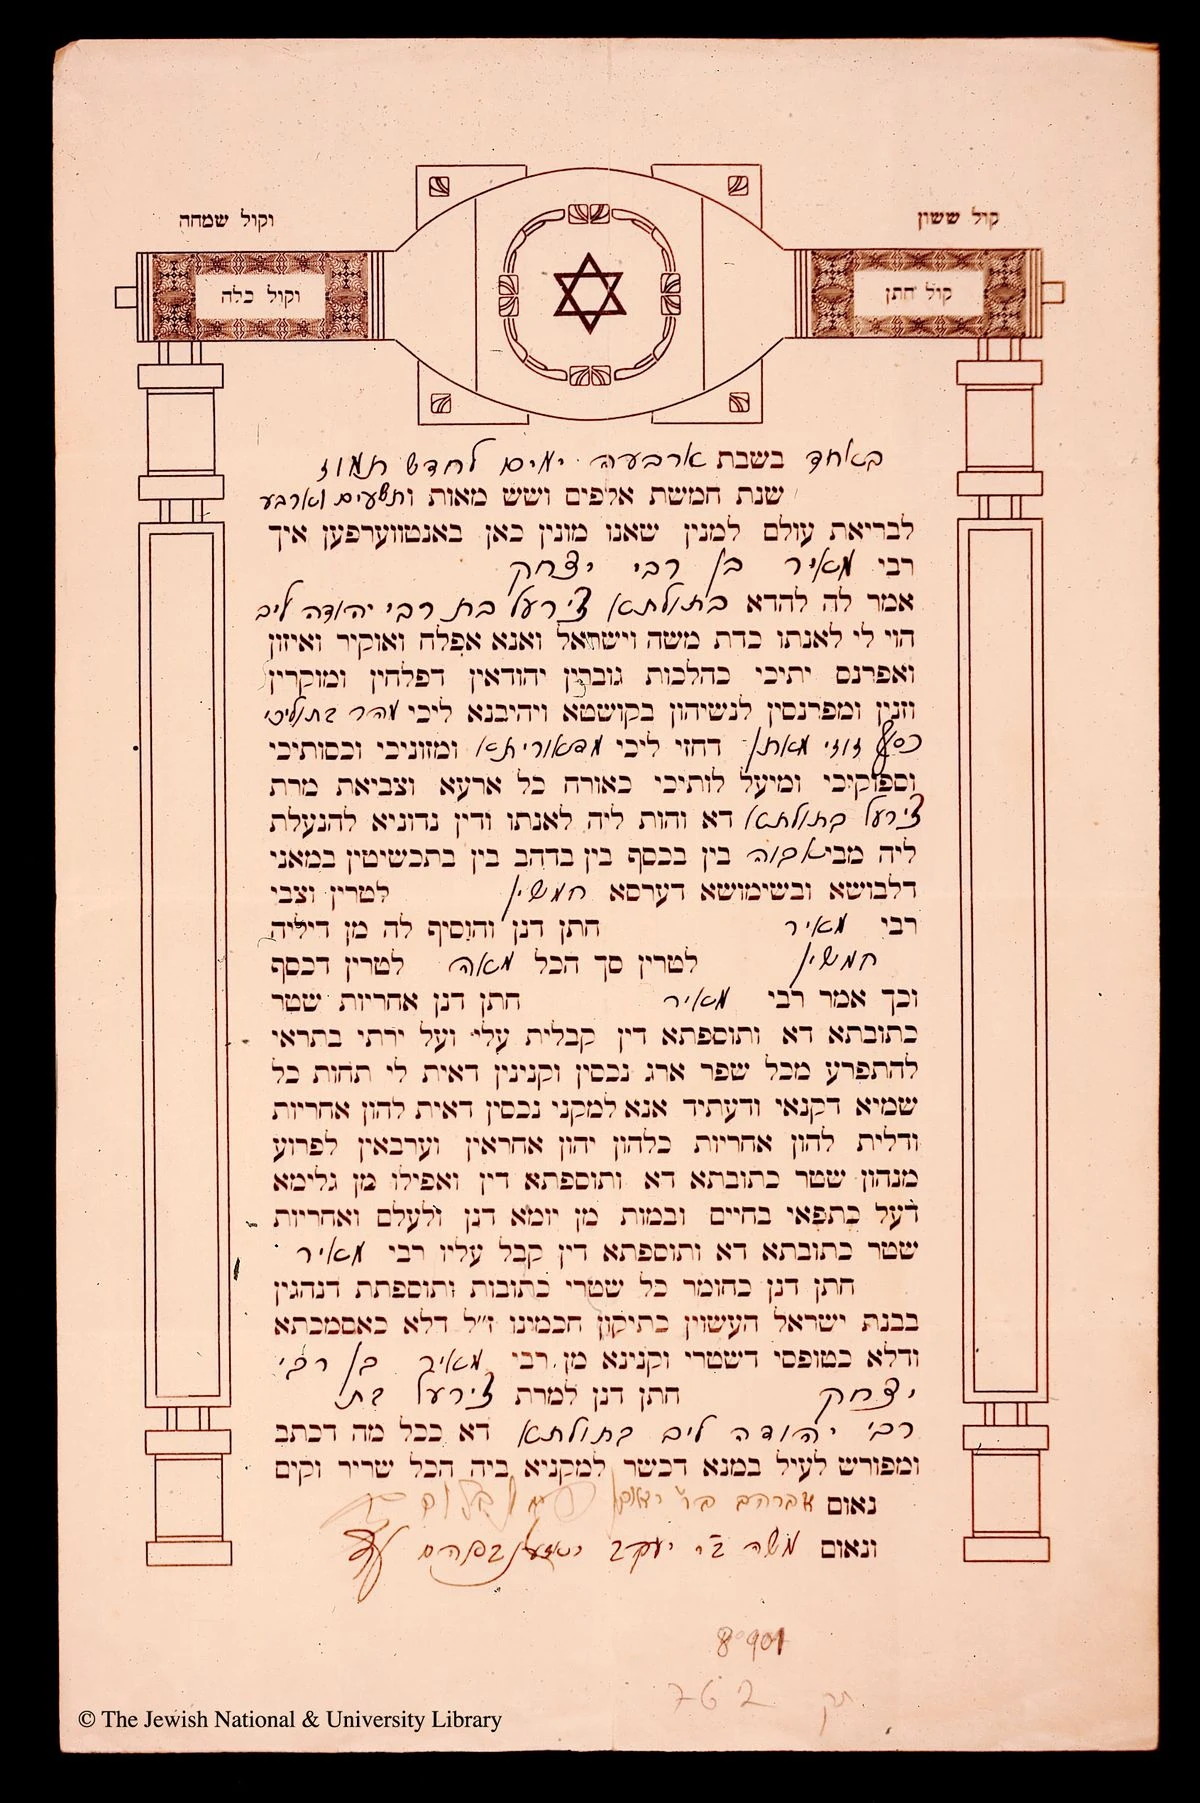 קול ששון
וקול שמחה
קול חתן
וקול כלה
באחד בשבת ארבעה ימים לחדש תמוז
שנת חמשת אלפים ושש מאות ותשעים וארבע
לבריאת עולם למנין שאנו מונין כאן באנטווערפען איך
רבי מאיר בן רבי יצחק
אמר לה להדא בתולתא צירעל בת רבי יהודה ליב
הוי לי לאנתו כדת משה וישראל ואנא אפלח ואוקיר ואיזון
ואפרנס יתיכי כהלכות גוברין יהודאין דפלחין ומוקרין
וזנין ומפרנסין לנשיהון בקושטא ויהיבנא ליכי מהר בתוליכי
כסף זוזי מאתן דחזי ליכי מדאוריתא ומזוניכי וכסותיכי
וספוקיכי ומיעל לותיכי כאורח כל ארעא וצביאת מרת
צירעל בתולתא דא והות ליה לאנתו ודין נדוניא להנעלת
ליה מבי אבוה בין בכסף בין בדהב בין בתכשיטין במאני
דלבושא ובשימושא דערסא חמשין לטרין וצבי
רבי מאיר חתן דנן והוסיף לה מן דיליה
חמשין לטרין סך הכל מאה לטרין דכסף
וכך אמר רבי מאיר חתן דנן אחריות שטר
כתובתא דא ותוספתא דין קבלית עלי ועל ירתי בתראי
להתפרע מכל שפר ארג נכסין וקנינין דאית לי תחות כל
שמיא דקנאי ודעתיד אנא למקני נכסין דאית להון אחריות
ודלית להון אחריות כלהון יהון אחראין וערבאין לפרוע
מנהון שטר כתובתא דא ותוספתא דין ואפילו מן גלימא
דעל כתפאי בחיים ובמות מן יומא דנן ולעלם ואחריות
שטר כתובתא דא ותוספתא דין קבל עליו רבי מאיר
חתן דנן כחומר כל שטרי כתובות ותוספתת דנהגין
בבנת ישראל העשוין כתיקון חכמינו ז״ל דלא כאסמכתא
ודלא כטופסי דשטרי וקנינא מן רבי מאיר בן רבי
יצחק חתן דנן למרת צירעל בת
רבי יהודה ליב בתולתא דא ככל מה דכתב
ומפורש לעיל במנא דכשר למקניא ביה הכל שריר וקים
נאום אברהם
ונאום משה בר יעקב
8°901
© The Jewish National & University Library